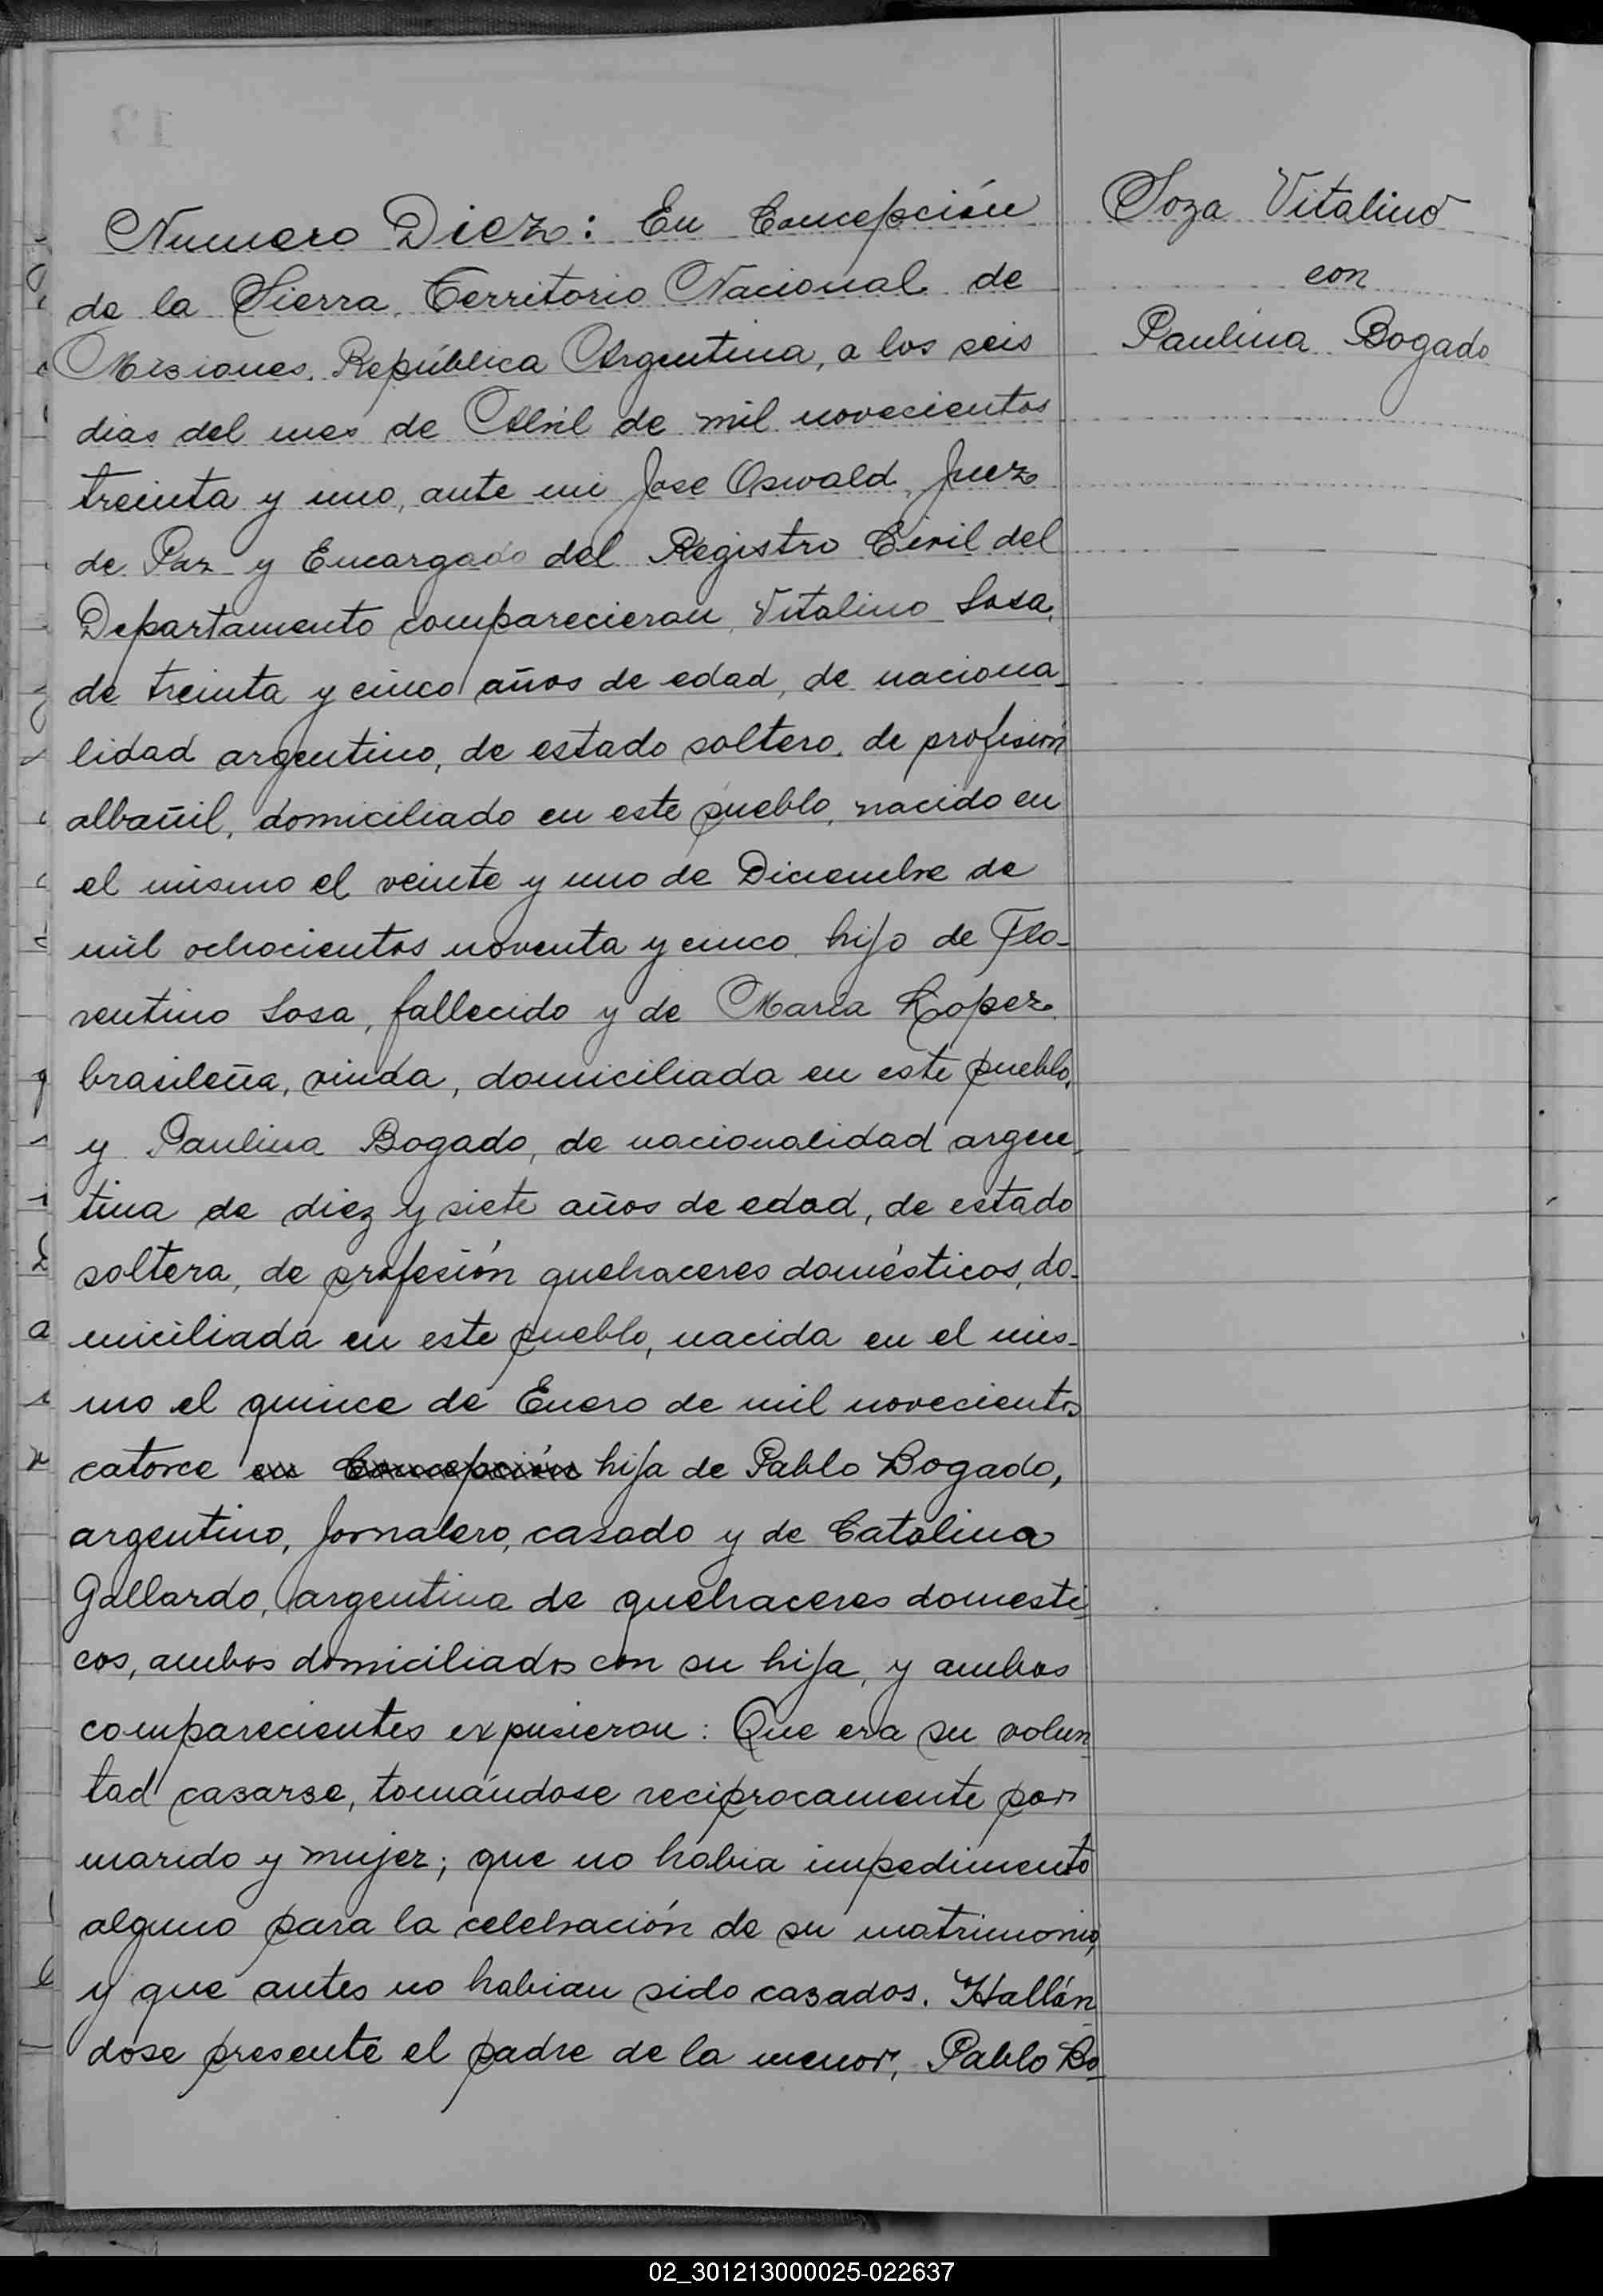 Numero Diez: En Concepción
de la Sierra, Territorio Nacional de
Misiones, República Argentina, a los seis
dias del mes de Abril de mil novecientos
treinta y uno, ante mi Jose Oswald, Juez
de Paz y Encargado del Registro Civil del
Departamento comparecieron, Vitalino Sosa,
de treinta y cinco años de edad, de naciona-
lidad argentino, de estado soltero, de profesión
albañil, domiciliado en este pueblo, nacido en
el mismo el veinte y uno de Diciembre de
mil ochocientos noventa y cinco, hijo de Flo-
rentino Sosa, fallecido y de Maria Lopez,
brasileña, viuda, domiciliada en este pueblo,
y Paulina Bogado, de nacionalidad argen-
tina de diez y siete años de edad, de estado
soltera, de profesión quehaceres domésticos, do-
miciliada en este pueblo, nacida en el mis-
mo el quince de Enero de mil novecientos
catorce en Concepción hija de Pablo Bogado,
argentino, jornalero, casado y de Catalina
Gallardo, argentina de quehaceres domesti-
cos, ambos domiciliados con su hija, y ambos
comparecientes expusieron: Que era su volun
tad casarse, tomándose reciprocamente por
marido y mujer; que no habia impedimento
alguno para la celebración de su matrimonio,
y que antes no habian sido casados. Hallán-
dose presente el padre de la menor, Pablo Bo-
Soza Vitalino
con
Paulina Bogado
13
02_301213000025-022637